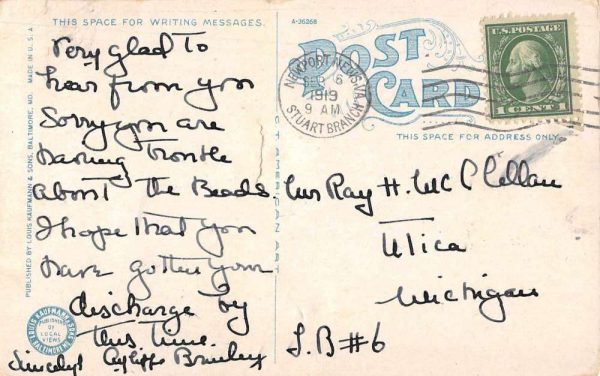 THIS SPACE FOR WRITING MESSAGES.
Very glad to
hear from you
Sorry you are
having trouble
about the Beads
I hope that you
have gotten your
discharge by
this time.
Sincerely
PUBLISHED BY LOUIS KAUFMANN & SONS, BALTIMORE, MD. MADE IN U.S.A
LOUIS KAUFMANN & SONS
BALTIMORE MD.
PUBLISHERS
OF
LOCAL
VIEWS
A-36268
POST
CARD
NEWPORT NEWS, VA.
DEC 6
1919
9 AM
STUART BRANCH
U.S. POSTAGE
1 CENT 1
THIS SPACE FOR ADDRESS ONLY.
Mr Ray H. McClellan
Utica
Michigan
L.B #6